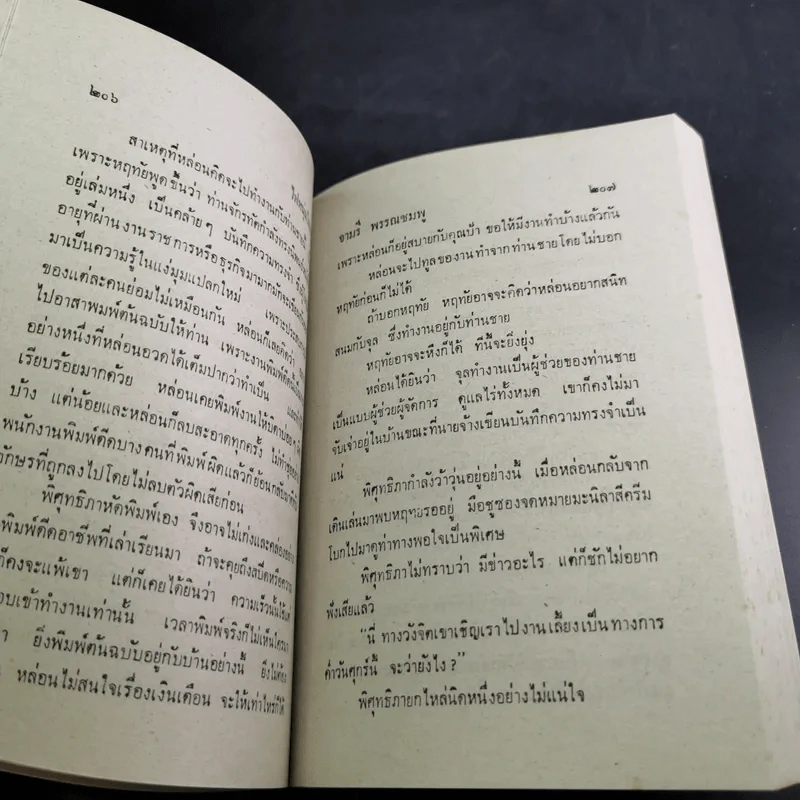 ๒๐๖
สาเหตุที่หล่อนคิดจะไปทำงานกับท่านชายนี้
เพราะหฤทัยพูดขึ้นว่า ท่านจักรทัตกำลังทรงนิพนธ์
อยู่เล่มหนึ่ง เป็นคล้ายๆ บันทึกความทรงจำ
อายุที่ผ่านงานราชการหรือธุรกิจมามากมักจะ
มาเป็นความรู้ในแง่มุมแปลกใหม่ เพราะประสบ
ของแต่ละคนย่อมไม่เหมือนกัน หล่อนก็เลยคิดว่า
ไปอาสาพิมพ์ต้นฉบับให้ท่าน เพราะงานพิมพ์ดีดนี้
อย่างหนึ่งที่หล่อนอวดได้เต็มปากว่าทำเป็น
เรียบร้อยมากด้วย หล่อนเคยพิมพ์งานให้บิดาบ่อยๆ
บ้าง แต่น้อยและหล่อนก็ลบสะอาดทุกครั้ง ไม่ทำ
พนักงานพิมพ์ดีดบางคนที่พิมพ์ผิดแล้วก็ย้อนกลับมา
อักษรที่ถูกลงไปโดยไม่ลบตัวผิดเสียก่อน
พิศุทธิภาหัดพิมพ์เอง จึงอาจไม่เก่งและคล่องอย่าง
พิมพ์ดีดอาชีพที่เล่าเรียนมา ถ้าจะคุยถึงสปีดหรือความ
ก็คงจะแพ้เขา แต่ก็เคยได้ยินว่า ความเร็วนั้นใช้แค่
อบเข้าทำงานเท่านั้น เวลาพิมพ์จริงก็ไม่เห็นใคร
ยิ่งพิมพ์ต้นฉบับอยู่กับบ้านอย่างนี้ ยิ่งไม่ต้อง
หล่อนไม่สนใจเรื่องเงินเดือน จะให้เท่าไหร่ก็ได้
จามรี พรรณชมพู ๒๐๗
เพราะหล่อนก็อยู่สบายกับคุณป้า ขอให้มีงานทำบ้างแล้วกัน
หล่อนจะไปทูลของานทำจากท่านชายโดยไม่บอก
หฤทัยก่อนก็ไม่ได้
ถ้าบอกหฤทัย หฤทัยอาจจะคิดว่าหล่อนอยากสนิท
สนมกับจุล ซึ่งทำงานอยู่กับท่านชาย
หฤทัยอาจจะหึงก็ได้ ทีนี้จะยิ่งยุ่ง
หล่อนได้ยินว่า จุลทำงานเป็นผู้ช่วยของท่านชาย
เป็นแบบผู้ช่วยผู้จัดการ ดูแลไร่ทั้งหมด เขาก็คงไม่มา
จับเจ่าอยู่ในบ้านขณะที่นายจ้างเขียนบันทึกความทรงจำเป็น
แน่
พิศุทธิภากำลังว้าวุ่นอยู่อย่างนี้ เมื่อหล่อนกลับจาก
เดินเล่นมาพบหฤทยรออยู่ มือชูซองจดหมายมะนิลาสีครีม
โบกไปมาดูท่าทางพอใจเป็นพิเศษ
พิศุทธิภาไม่ทราบว่า มีข่าวอะไร แต่ก็ชักไม่อยาก
ฟังเสียแล้ว
“นี่ ทางวังจิตเขาเชิญเราไปงานเลี้ยงเป็นทางการ
ค่ำวันศุกร์นี้ จะว่ายังไง ?”
พิศุทธิภายกไหล่นิดหนึ่งอย่างไม่แน่ใจ